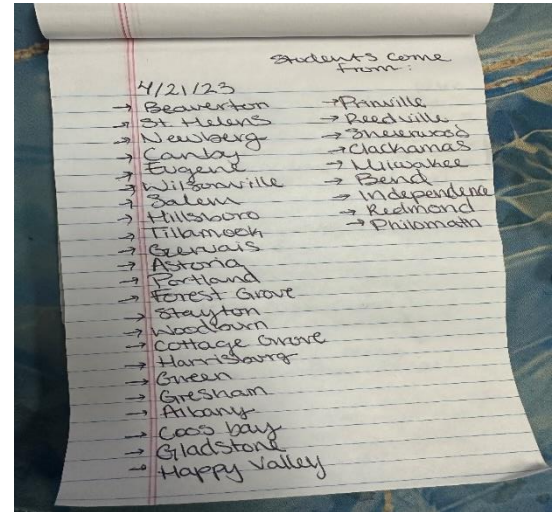 Students come
from:
4/21/23
→ Beaverton
→ St Helens
→ Newberg
→ Canby
→ Eugene
→ Wilsonville
→ Salem
→ Hillsboro
→ Tillamook
→ Gervais
→ Astoria
→ Portland
→ Forest Grove
→ Stayton
→ Woodburn
→ Cottage Grove
→ Harrisburg
→ Green
→ Gresham
→ Albany
→ Coos bay
→ Gladstone
→ Happy Valley
→ Prinville
→ Reedville
→ Sherwood
→ Clackamas
→ Milwakee
→ Bend
→ Independence
→ Redmond
→ Philomath